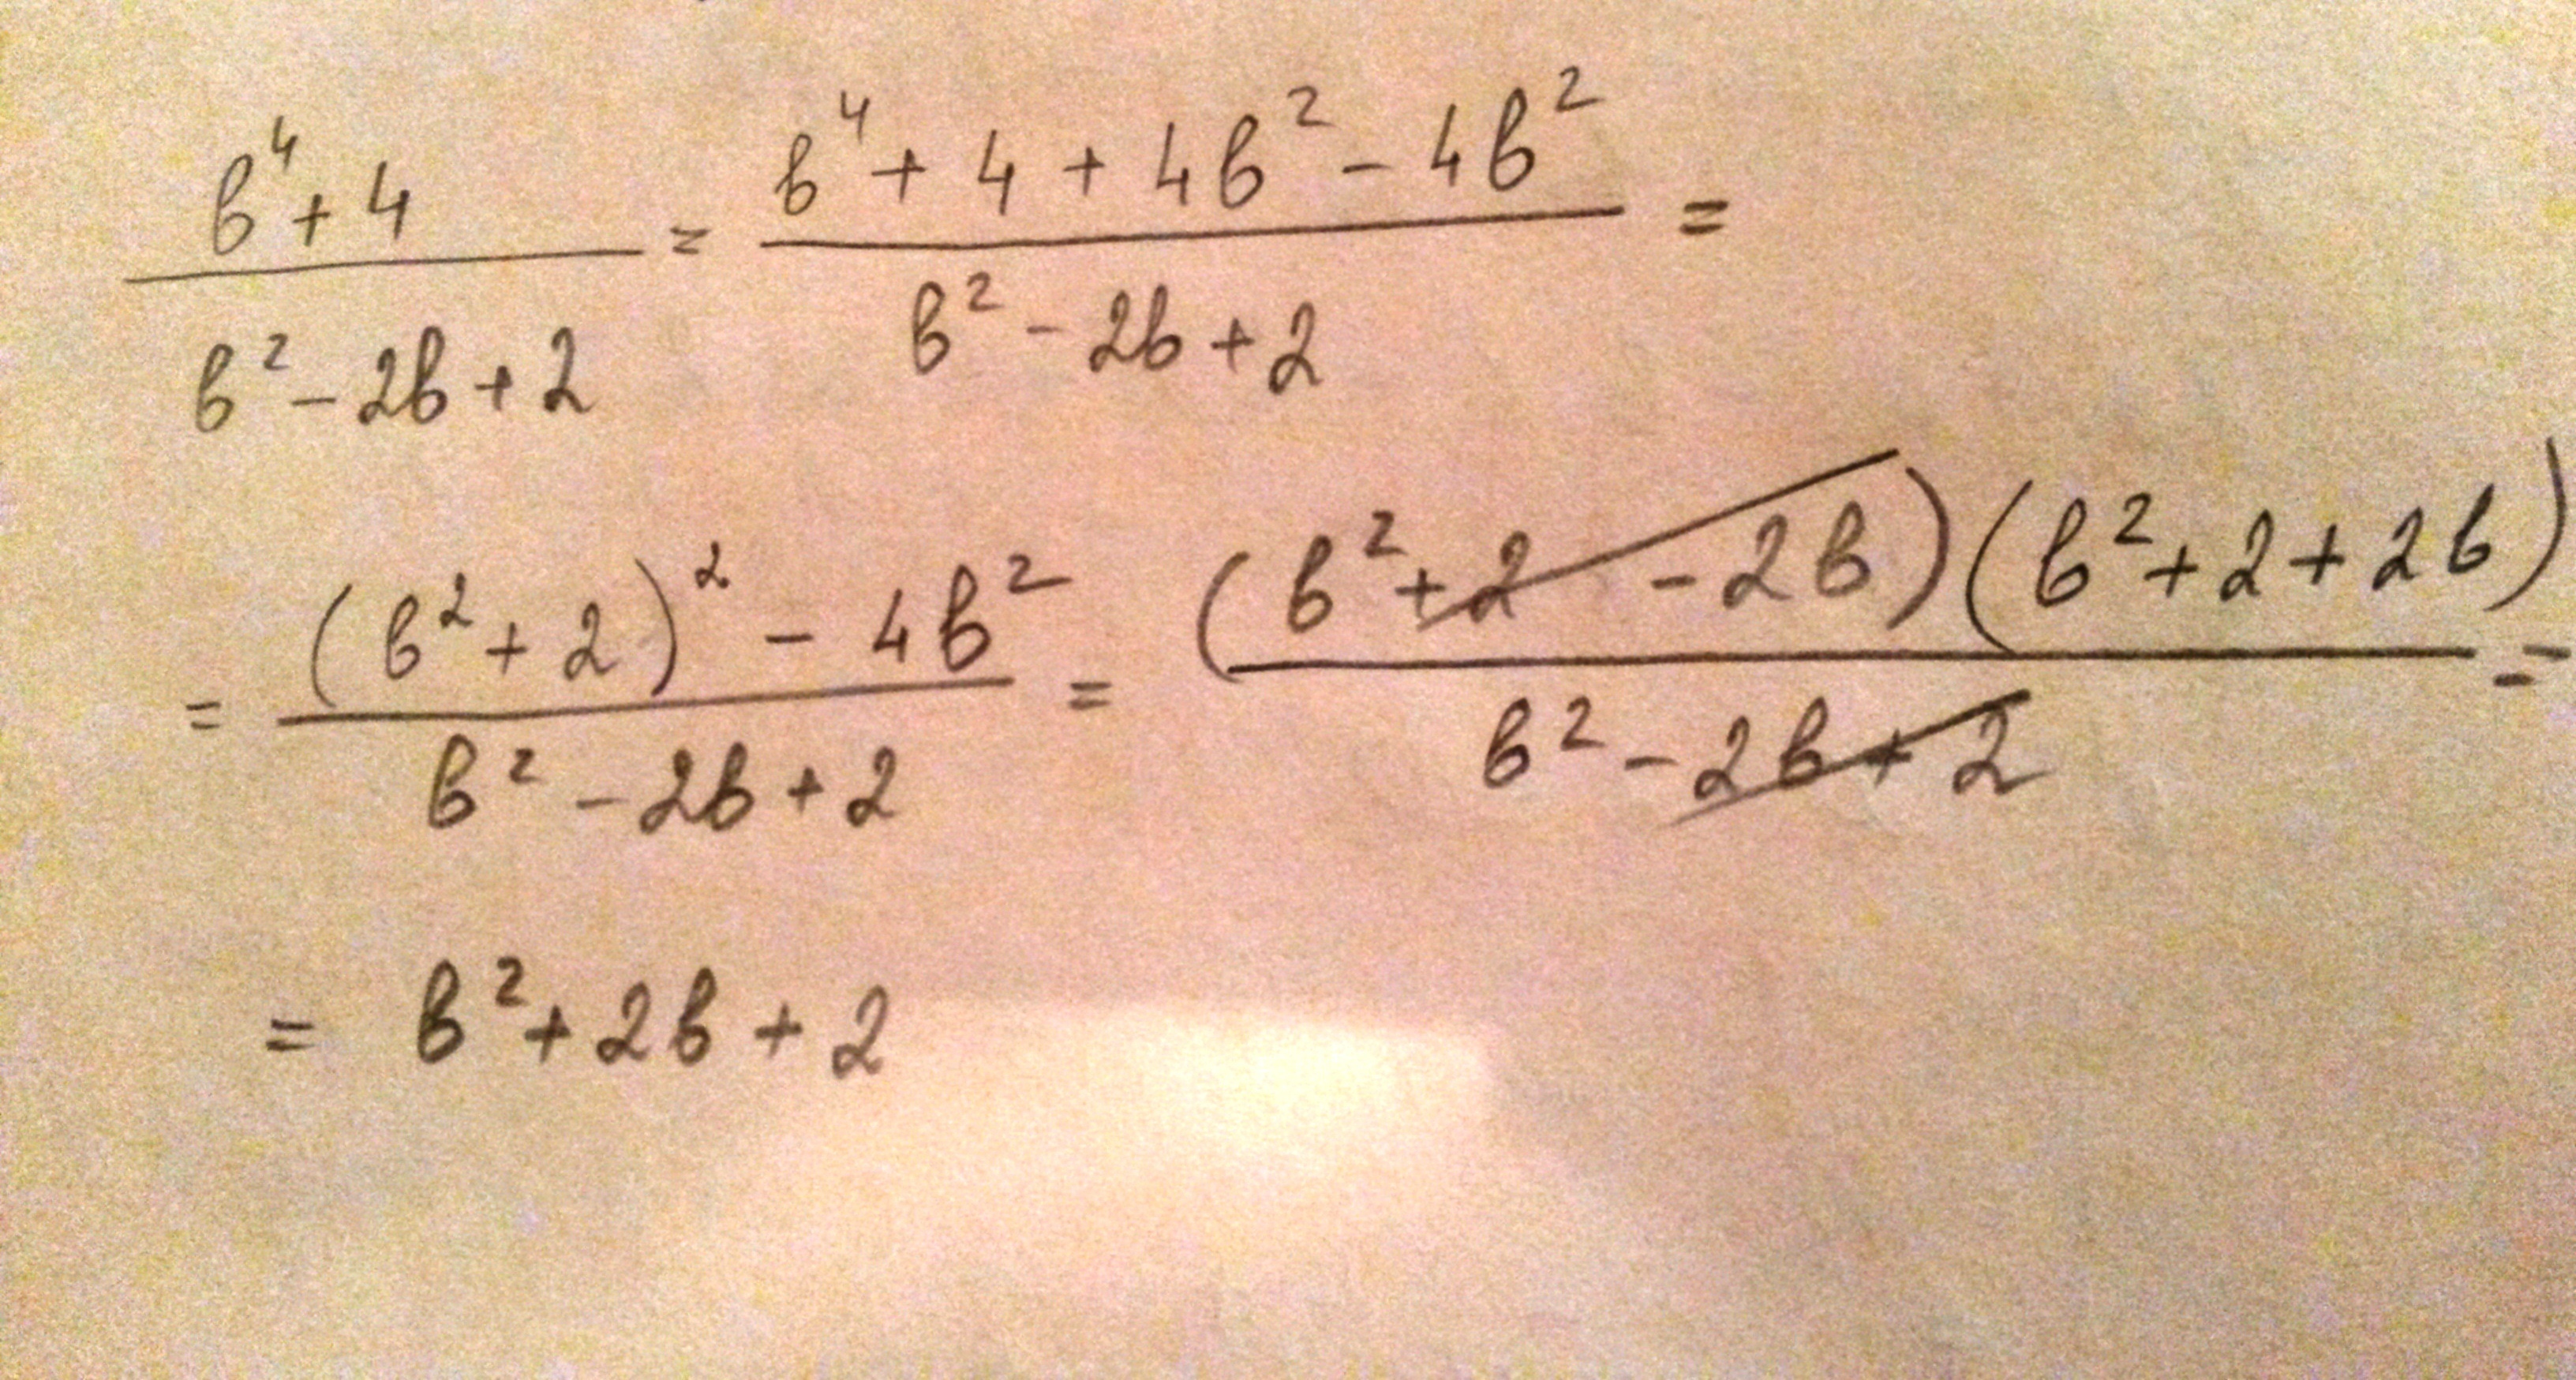 b⁴ + 4 / b² - 2b + 2 = b⁴ + 4 + 4b² - 4b² / b² - 2b + 2 =
= (b² + 2)² - 4b² / b² - 2b + 2 = (b² + 2 - 2b)(b² + 2 + 2b) / b² - 2b + 2 =
= b² + 2b + 2